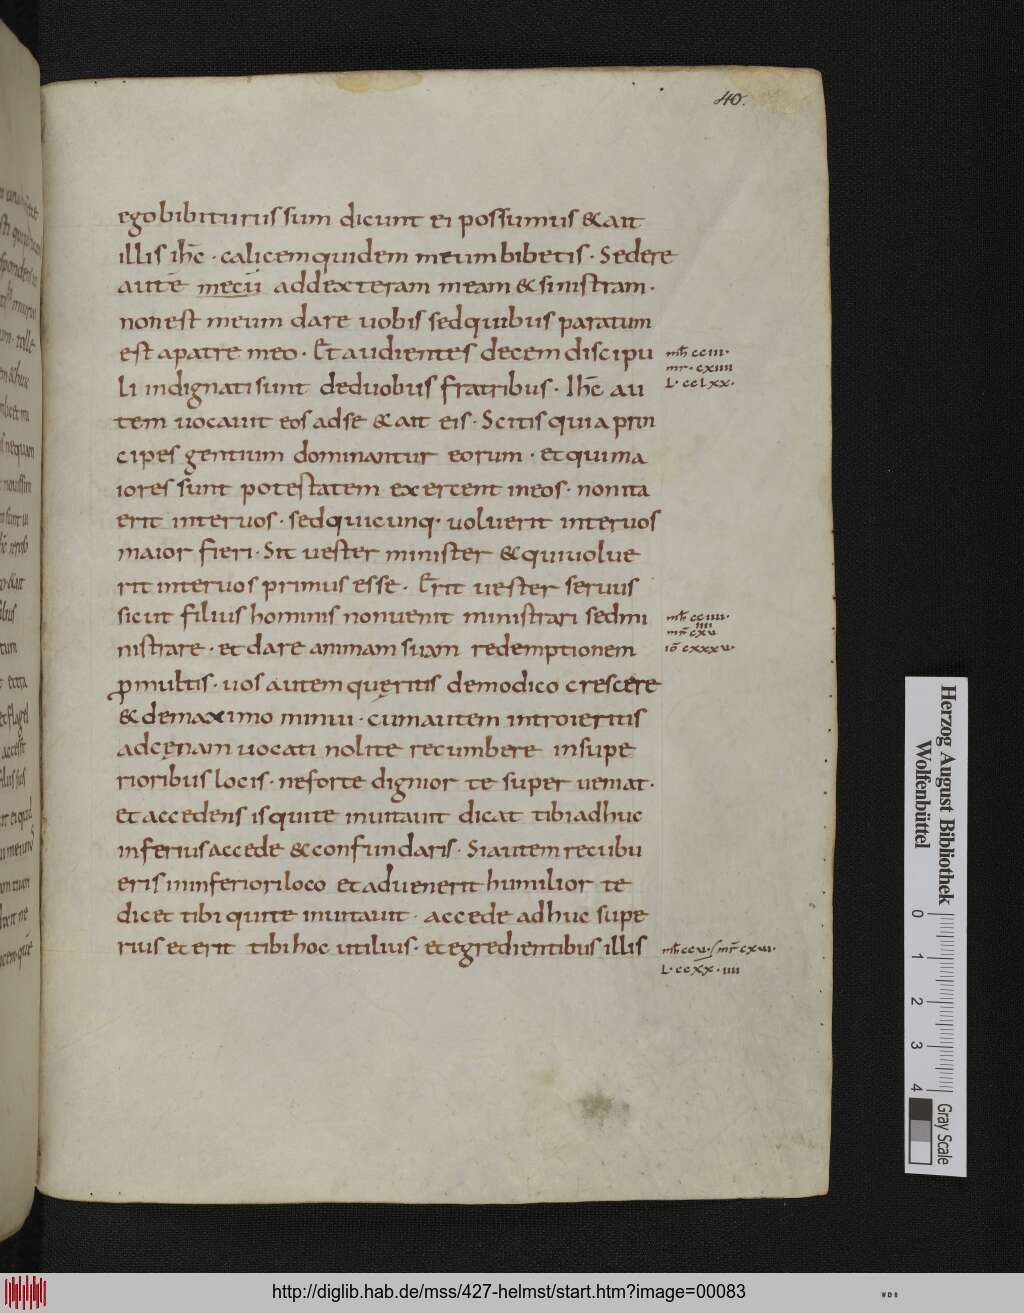 40.
ego bibiturus sum dicunt ei possumus & ait
illis ihc̄ · calicem quidem meum bibetis · Sedere
autē mecū ad dexteram meam & sinistram ·
non est meum dare uobis sed quibus paratum
est a patre meo · Et audientes decem discipu
li indignati sunt de duobus fratribus · Ihc̄ au
tem uocauit eos ad se & ait eis · Scitis quia prin
cipes gentium dominantur eorum · et qui ma
iores sunt potestatem exercent in eos · non ita
erit inter uos · sed quicunq· uoluerit inter uos
maior fieri · Sit uester minister & qui uolue
rit inter uos primus esse · Erit uester seruus
sicut filius hominis non uenit ministrari sed mi
nistrare · et dare animam suam redemptionem
ꝓ multis · uos autem quęritis de modico crescere
& de maximo minui · cum autem introieritis
ad cęnam uocati nolite recumbere in supe
rioribus locis · ne forte dignior te super ueniat ·
et accedens is qui te inuitauit dicat tibi adhuc
inferius accede & confundaris · Si autem recubu
eris in inferiori loco et aduenerit humilior te
dicet tibi qui te inuitauit · accede adhuc supe
rius et erit tibi hoc utilius · et egredientibus illis
mt̄ cciii ·
mr · cxiiii
L · cclxx ·
mt̄ cciiii ·
mr̄ cxv
iiii
iō cxxxv ·
mt̄ ccv · mr̄ cxvi ·
L · ccxx · iiii
Herzog August Bibliothek
Wolfenbüttel
0 1 2 3 4
Gray Scale
http://diglib.hab.de/mss/427-helmst/start.htm?image=00083